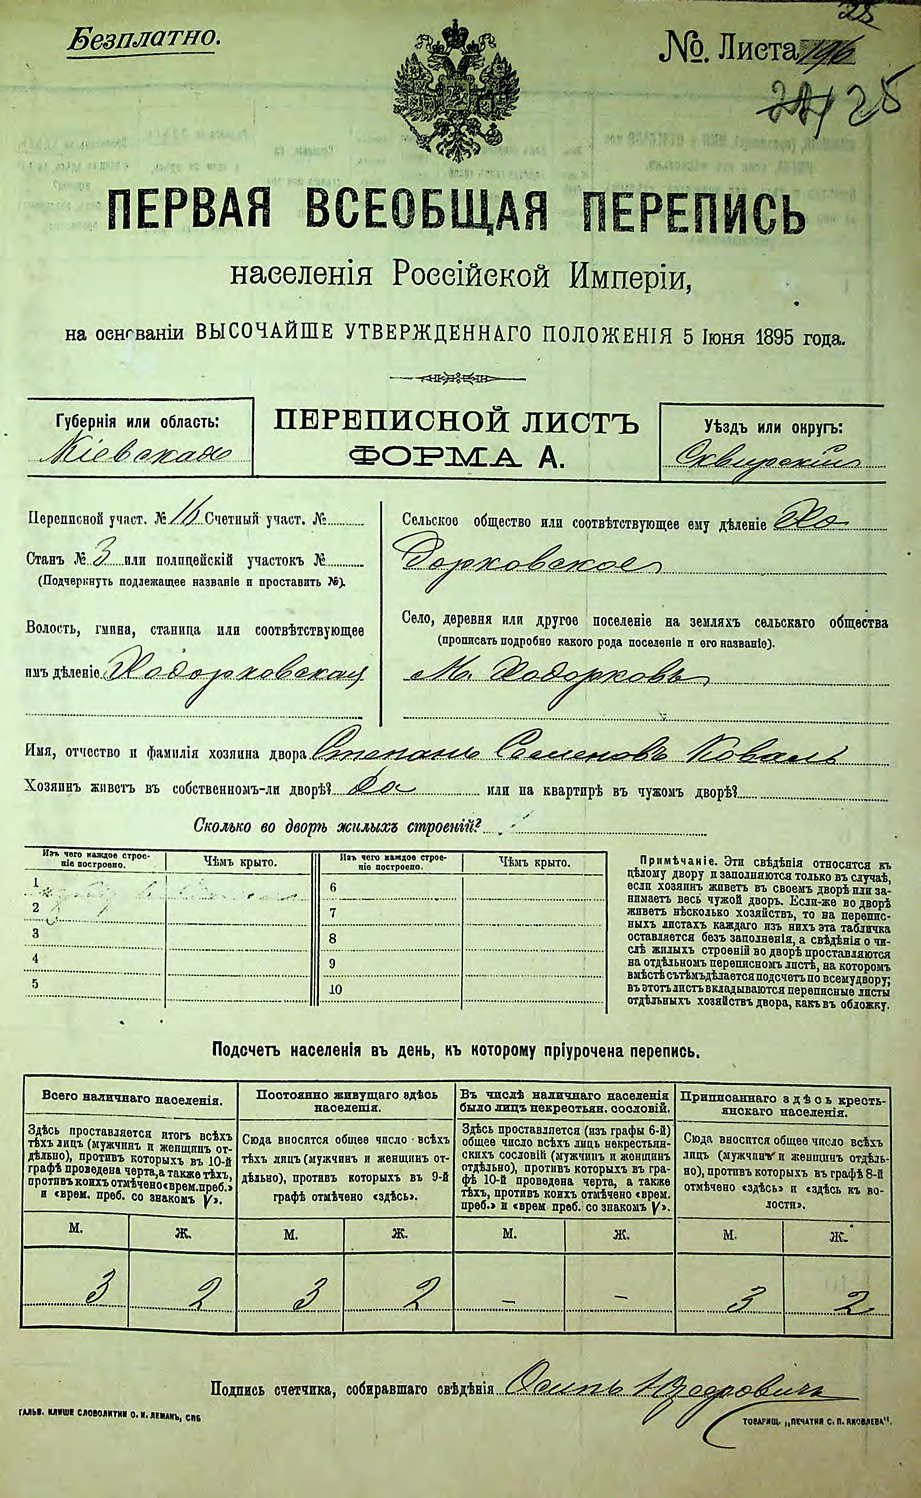 Безплатно.
№. Листа
25
ПЕРВАЯ ВСЕОБЩАЯ ПЕРЕПИСЬ
населенія Россійской Имперіи,
на основаніи ВЫСОЧАЙШЕ УТВЕРЖДЕННАГО ПОЛОЖЕНІЯ 5 Іюня 1895 года.
Губернія или область:
Кіевская
ПЕРЕПИСНОЙ ЛИСТЪ
ФОРМА А.
Уѣздъ или округъ:
Сквирскій
Переписной участ. № 16 Счетный участ. №
Станъ № 3 или полицейскій участокъ №
(Подчеркнуть подлежащее названіе и проставить №).
Волость, гмина, станица или соотвѣтствующее
имъ дѣленіе Ходорковская
Сельское общество или соотвѣтствующее ему дѣленіе Хо
дорковское
Село, деревня или другое поселеніе на земляхъ сельскаго общества
(прописать подробно какого рода поселеніе и его названіе).
М. Ходорковъ
Имя, отчество и фамилія хозяина двора Степанъ Семеновъ Коваль
Хозяинъ живетъ въ собственномъ-ли дворѣ? Да или на квартирѣ въ чужомъ дворѣ?
Сколько во дворѣ жилыхъ строеній?
Изъ чего каждое строе-
ніе построено.
Чѣмъ крыто.
Изъ чего каждое строе-
ніе построено.
Чѣмъ крыто.
1
6
2
7
3
8
4
9
5
10
Примѣчаніе. Эти свѣдѣнія относятся къ
цѣлому двору и заполняются только въ случаѣ,
если хозяинъ живетъ въ своемъ дворѣ или за-
нимаетъ весь чужой дворъ. Если-же во дворѣ
живетъ нѣсколько хозяйствъ, то на перепис-
ныхъ листахъ каждаго изъ нихъ эта табличка
оставляется безъ заполненія, а свѣдѣнія о чи-
слѣ жилыхъ строеній во дворѣ проставляются
на отдѣльномъ переписномъ листѣ, на которомъ
вмѣстѣ съ тѣмъ дѣлается подсчетъ по всему двору;
въ этотъ листъ вкладываются переписные листы
отдѣльныхъ хозяйствъ двора, какъ въ обложку.
Подсчетъ населенія въ день, къ которому пріурочена перепись.
Всего наличнаго населенія.
Здѣсь проставляется итогъ всѣхъ
тѣхъ лицъ (мужчинъ и женщинъ от-
дѣльно), противъ которыхъ въ 10-й
графѣ проведена черта, а также тѣхъ,
противъ коихъ отмѣчено «врем. преб.»
и «врем. преб. со знакомъ V».
М. Ж.
3 2
Постоянно живущаго здѣсь
населенія.
Сюда вносится общее число всѣхъ
тѣхъ лицъ (мужчинъ и женщинъ от-
дѣльно), противъ которыхъ въ 9-й
графѣ отмѣчено «здѣсь».
М. Ж.
3 2
Въ числѣ наличнаго населенія
было лицъ некрестьян. сословій.
Здѣсь проставляется (изъ графы 6-й)
общее число всѣхъ лицъ некрестьян-
скихъ сословій (мужчинъ и женщинъ
отдѣльно), противъ которыхъ въ гра-
фѣ 10-й проведена черта, а также
тѣхъ, противъ коихъ отмѣчено «врем.
преб.» и «врем преб. со знакомъ V».
М. Ж.
– –
Приписаннаго здѣсь кресть-
янскаго населенія.
Сюда вносится общее число всѣхъ
лицъ (мужчинъ и женщинъ отдѣль-
но), противъ которыхъ въ графѣ 8-й
отмѣчено «здѣсь» и «здѣсь къ во-
лости».
М. Ж.
3 2
Подпись счетчика, собиравшаго свѣдѣнія Осипъ
ГАЛЬВ. КЛИШЕ СЛОВОЛИТНИ О. И. ЛЕМАНЪ, СПБ
ТОВАРИЩ. „ПЕЧАТНЯ С. П. ЯКОВЛЕВА“.